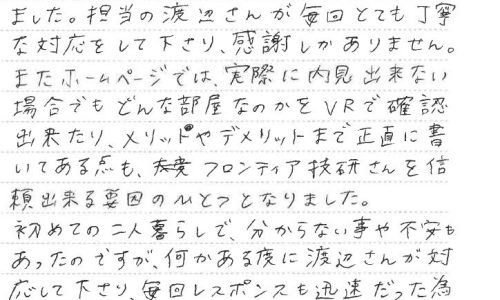 ました。担当の渡辺さんが毎回とても丁寧
な対応をして下さり、感謝しかありません。
またホームページでは、実際に内見出来ない
場合でもどんな部屋なのかをVRで確認
出来たり、メリットやデメリットまで正直に書
いてある点も、フロンティア技研さんを信
頼出来る要因のひとつとなりました。
初めての二人暮らしで、分からない事や不安も
あったのですが、何かある度に渡辺さんが対
応して下さり、毎回レスポンスも迅速だった為